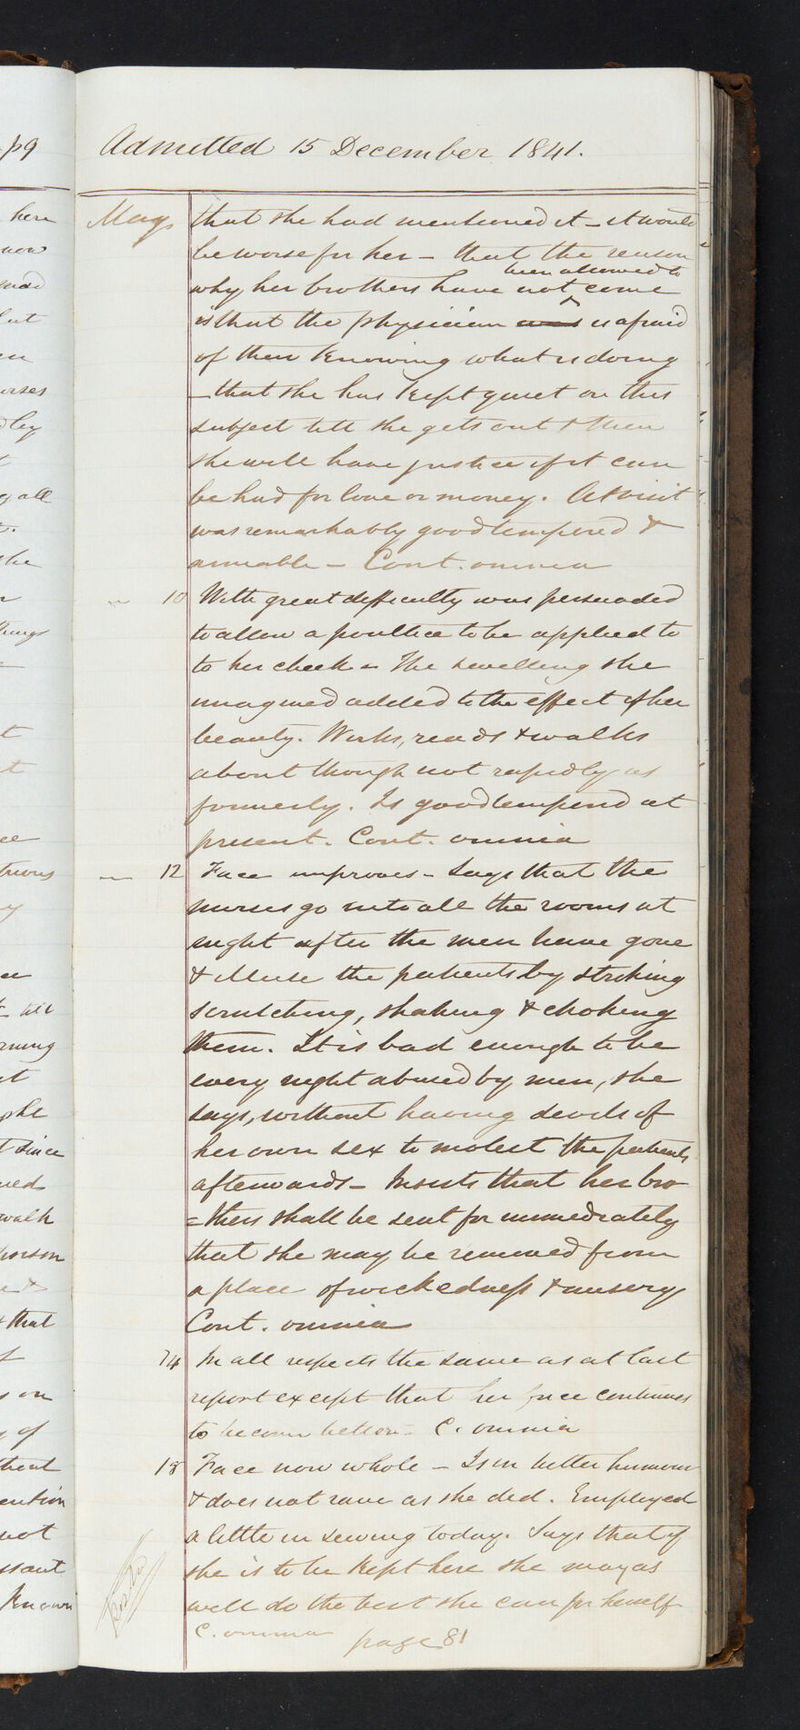 Admitted 15 December 1841.
May that she had mentioned it - it would
be worse for her - that the reason
been allowed to
why her brothers have not ^ come
is that the physician was is afraid
of their knowing what is doing
- that she has kept quiet on this
subject till she gets out & then
she will have justice if it can
be had for love or money. At visit
was remarkably good tempered &
amiable - Cont. omnia
" 10 With great difficulty was persuaded
to allow a poultice to be applied to
to her cheek - The swelling she
imagined added to the effect of her
beauty. Works, reads & walks
about though not rapidly as
formerly. Is good tempered at
present. Cont. omnia
" 12 Face improves - Says that the
nurses go into all the rooms at
night after the men have gone
& illuse the patients by striking
scratching, shaking & choking
them. It is bad enough to be
every night abused by men, she
says, without having devils of
her own sex to molest the patients
afterwards - Insists that her bro
=thers shall be sent for immediately
that she may be removed from
a place of wickedness & misery
Cont. omnia
14 In all respects the same as at last
report except that her face continues
to become better - C. omnia
18 Face now whole - Is in better humour
& does not rave as she did. Employed
a little in sewing today. Says that if
she is to be kept here she may as
well do the best she can for herself
C. omnia page 81
pg
here
now
but
nurses
all
she
things
till
since
walk
person
& that
of
that
not
known